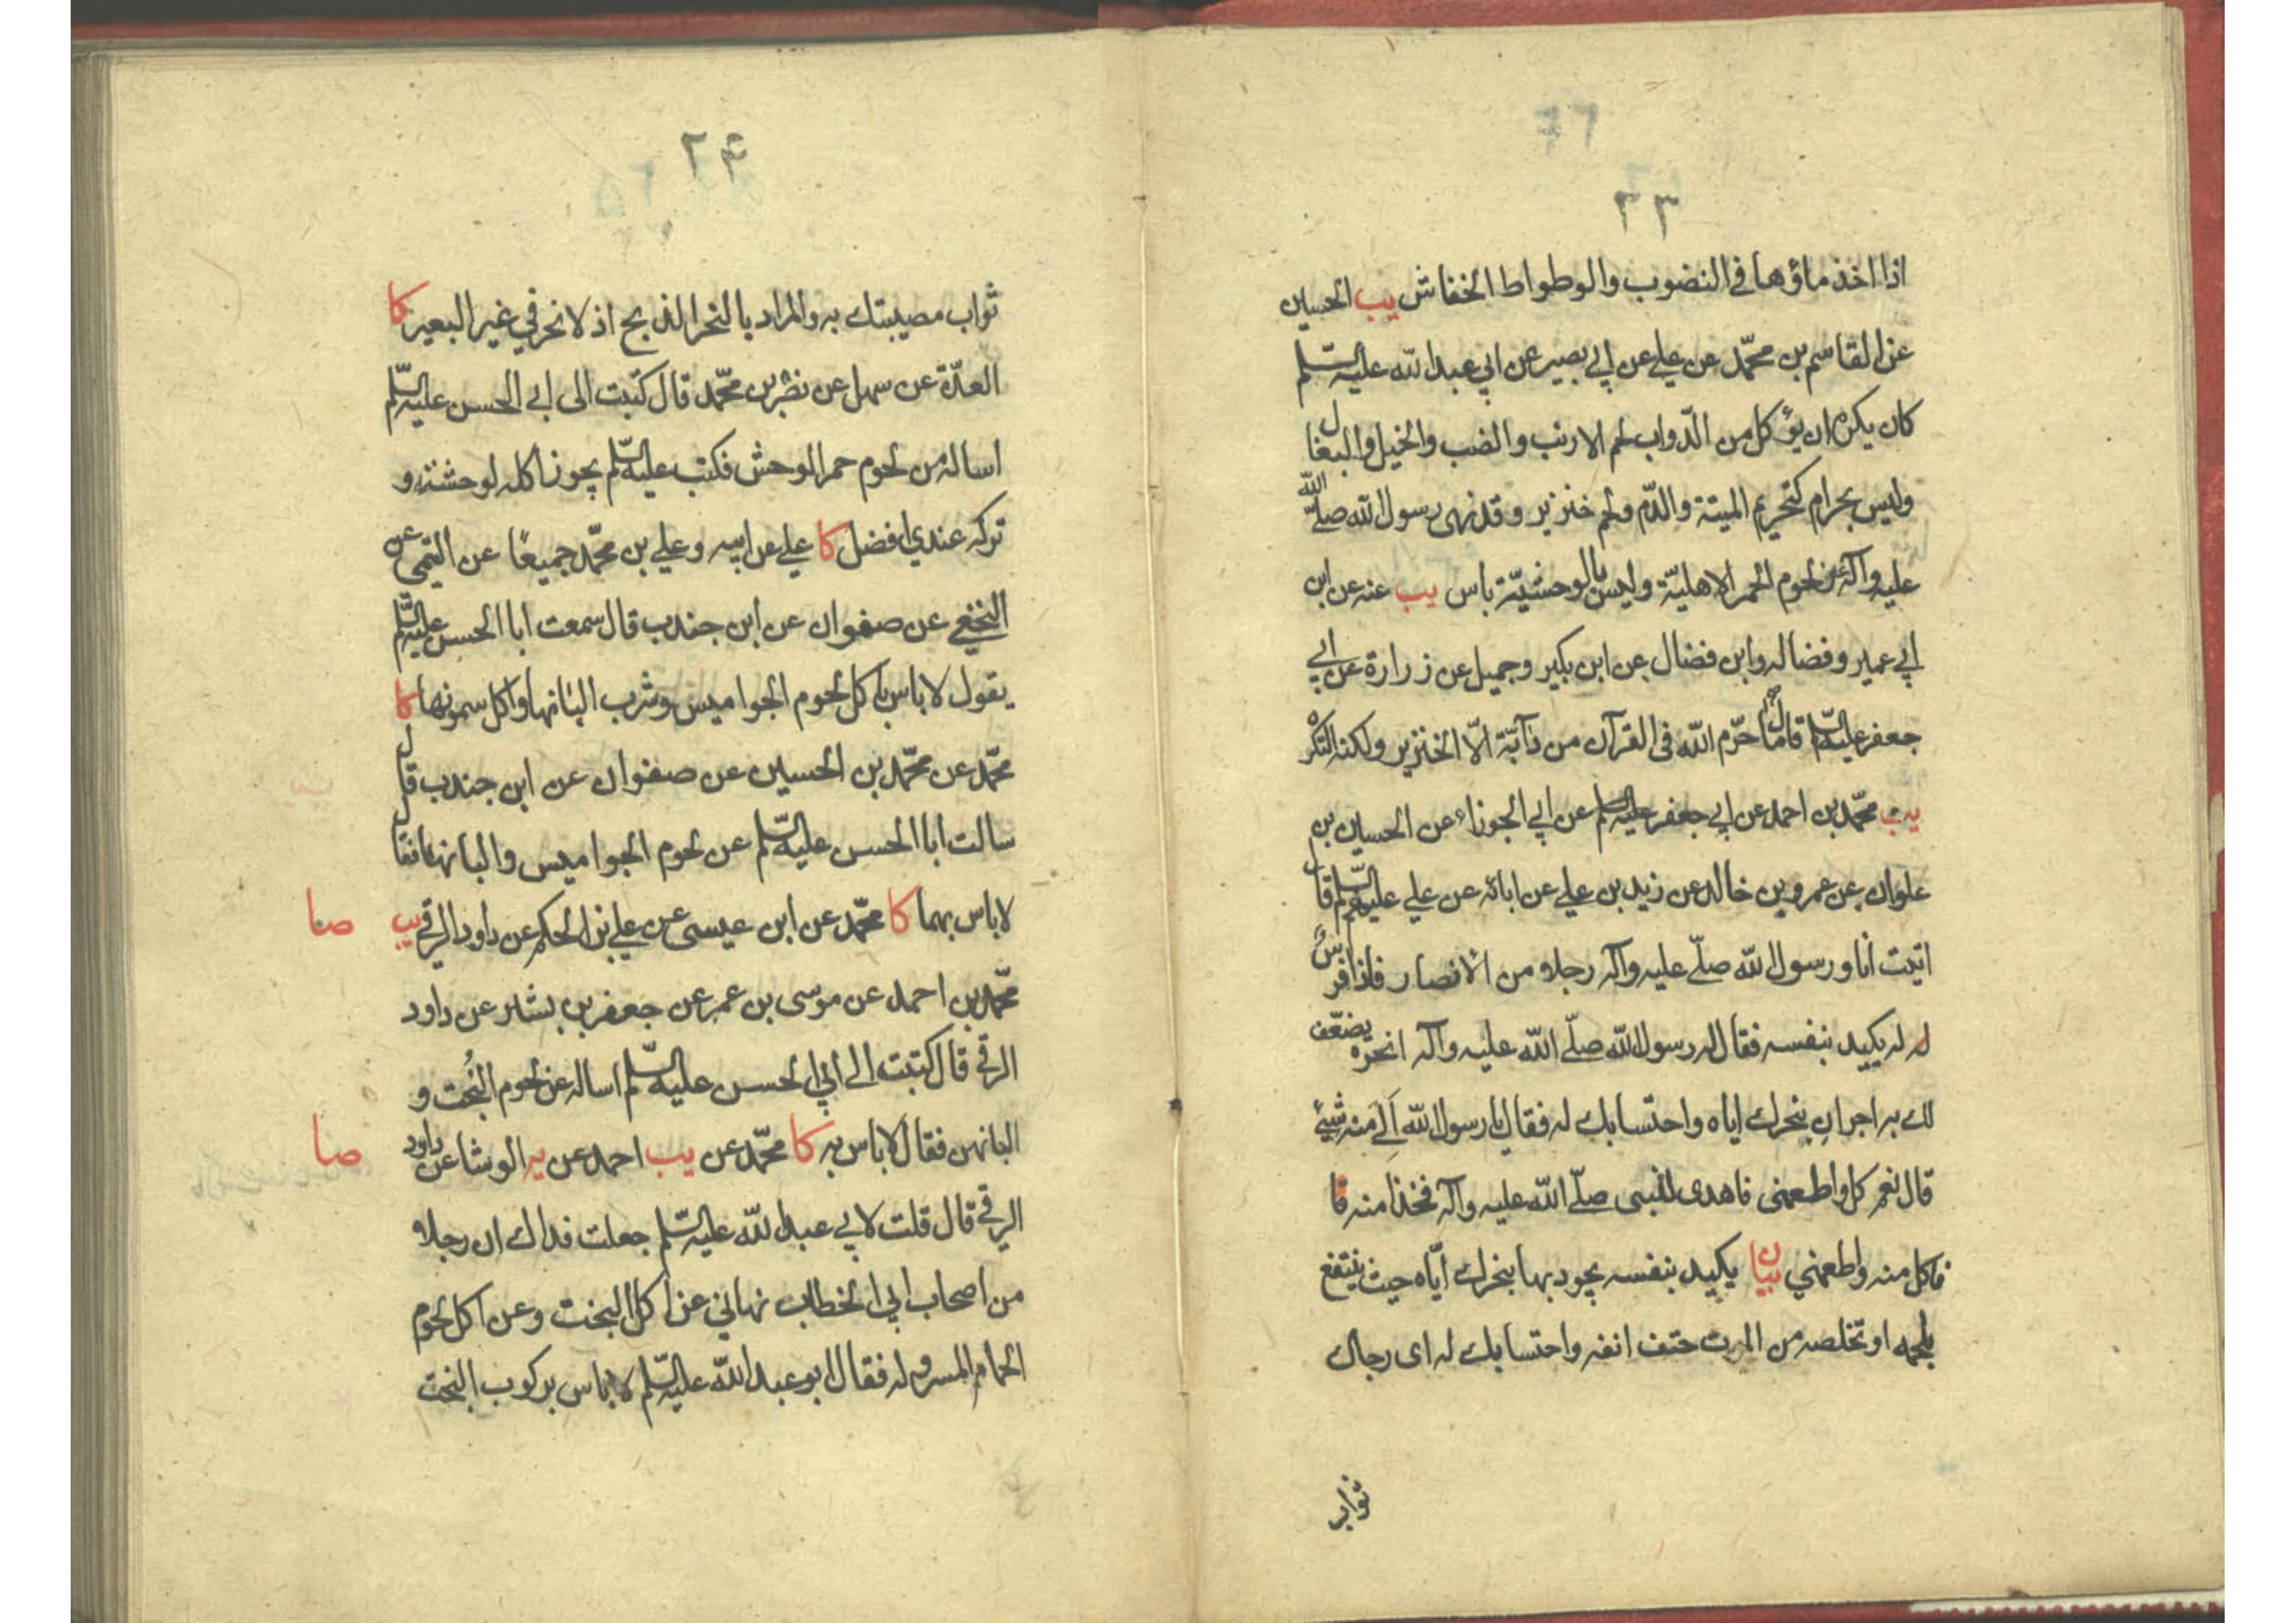 ٢٣
اذا اخذ ماؤها في النضوب والوطواط الخفاش يب الحسين
عن القاسم بن محمّد عن علي عن ابي بصير عن ابي عبد الله عليه السّلم
كان يكره ان يؤكل من الدّواب لحم الارنب والضب والخيل والبغال
وليس بحرام كتحريم الميتة والدّم ولحم خنزير وقد نهى رسول الله صلّى الله
عليه وآله عن لحوم الحمر الاهليّة وليس بالوحشيّة باس يب عنه عن ابن
ابي عمير وفضاله وابن فضال عن ابن بكير وجميل عن زرارة عن ابي
جعفر عليه السّلم قال ما حرّم الله في القرآن من دآبّة الّا الخنزير ولكنه النكره
يب محمّد بن احمد عن ابي جعفر عليه السلم عن ابي الجوزاء عن الحسين بن
علوان عن عمرو بن خالد عن زيد بن علي عن ابائه عن علي عليهم السّلم قال
اتيت انا ورسول الله صلّى عليه وآله رجلا من الانصار فاذا فرسٌ
له يكيد بنفسه فقال له رسول الله صلّى الله عليه وآله انحره يضعّف
لك به اجران بنحرك اياه واحتسابك له فقال يا رسول الله أَلِيَ منه شيئ
قال نعم كل واطعمني فاهدى للنبي صلّى الله عليه وآله فخذا منه قا
فاكل منه واطعمني بيان يكيد بنفسه يجود بها بنحرك ايّاه حيث ينتفع
بلحمه او تخلصه من الموت حتف انفه واحتسابك له اى رجاك
ثواب
٢٤
ثواب مصيبتك به والمراد بالنحر الذبح اذ لا نحر في غير البعير كا
العدّة عن سهل عن نضر بن محمّد قال كتبت الى ابي الحسن عليه السّلم
اساله من لحوم حمر الوحش فكتب عليه السّلم يجوز اكله لوحشته و
تركه عندي افضل كا علي عن ابيه وعلي بن محمّد جميعًا عن التيمي عن
النخعي عن صفوان عن ابن جندب قال سمعت ابا الحسن عليه السّلم
يقول لا باس باكل لحوم الجواميس وشرب البانها واكل سمونها كا
محمّد عن محمّد بن الحسين عن صفوان عن ابن جندب قال
سالت ابا الحسن عليه السّلم عن لحوم الجواميس والبانها فقال
لا باس بهما كا محمّد عن ابن عيسى عن علي بن الحكم عن داود الرقي يب صا
محمّد بن احمد عن موسى بن عمر عن جعفر بن بشير عن داود
الرقي قال كتبت الى ابي الحسن عليه السّلم اساله عن لحوم البُخت و
البانهن فقال لا باس به كا محمّد عن يب احمد عن يه الوشا عن داود صا
الرقي قال قلت لابي عبد الله عليه السّلم جعلت فداك ان رجلا
من اصحاب ابي الخطاب نهاني عن اكل البخت وعن اكل لحوم
الحمام المسروله فقال ابو عبد الله عليه السّلم لا باس بركوب البخت